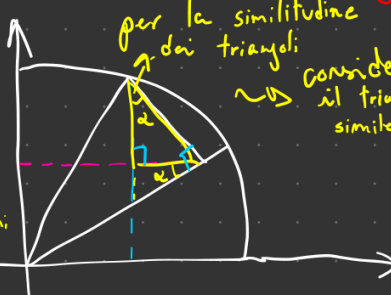 per la similitudine
dei triangoli
conside
il tria
simile
α
α